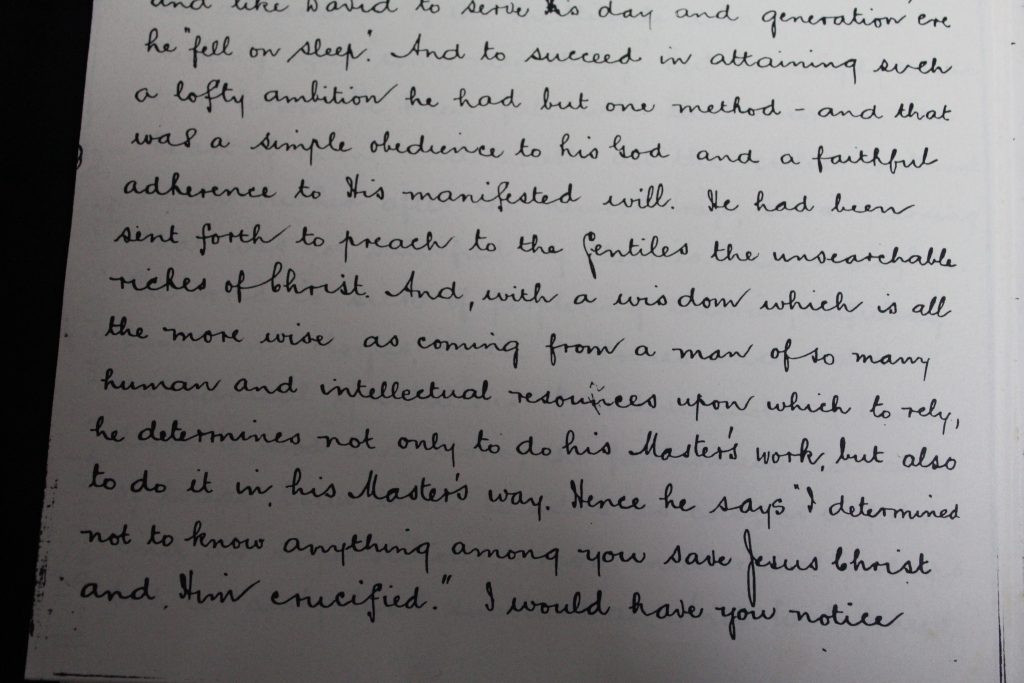 and like David to serve his day and generation ere
he "fell on sleep". And to succeed in attaining such
a lofty ambition he had but one method - and that
was a simple obedience to his God and a faithful
adherence to His manifested will. He had been
sent forth to preach to the Gentiles the unsearchable
riches of Christ. And, with a wisdom which is all
the more wise as coming from a man of so many
human and intellectual resources upon which to rely,
he determines not only to do his Master's work, but also
to do it in his Master's way. Hence he says "I determined
not to know anything among you save Jesus Christ
and Him crucified." I would have you notice